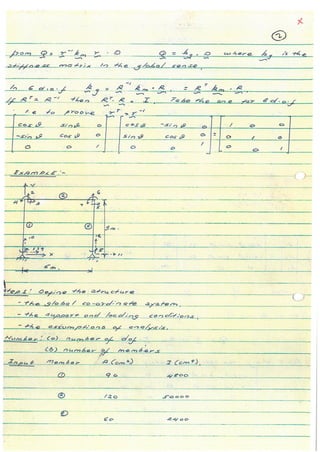 2
from Q = r⁻¹ km r · D Q = kg · D where kg is the
stiffness matrix in the global sense.
In 6 d.o.f kg = R⁻¹ km · R = Rᵀ km · R
If Rᵀ = R⁻¹ then Rᵀ R = I. Take the one for 6 d.o.f
i.e to proove rᵀ = r⁻¹
cosθ sinθ 0 cosθ -sinθ 0 1 0 0
-sinθ cosθ 0 sinθ cosθ 0 = 0 1 0
0 0 1 0 0 1 0 0 1
EXAMPLE:-
Y
X
5m
6m
Step 1: Define the structure
- the global co-ordinate system,
- the support and loading conditions,
- the assumptions of analysis.
Number: (a) number of dof
(b) number of members
Input Member A(cm²) I(cm⁴).
① 90 4800
② 120 50000
③ 60 2400